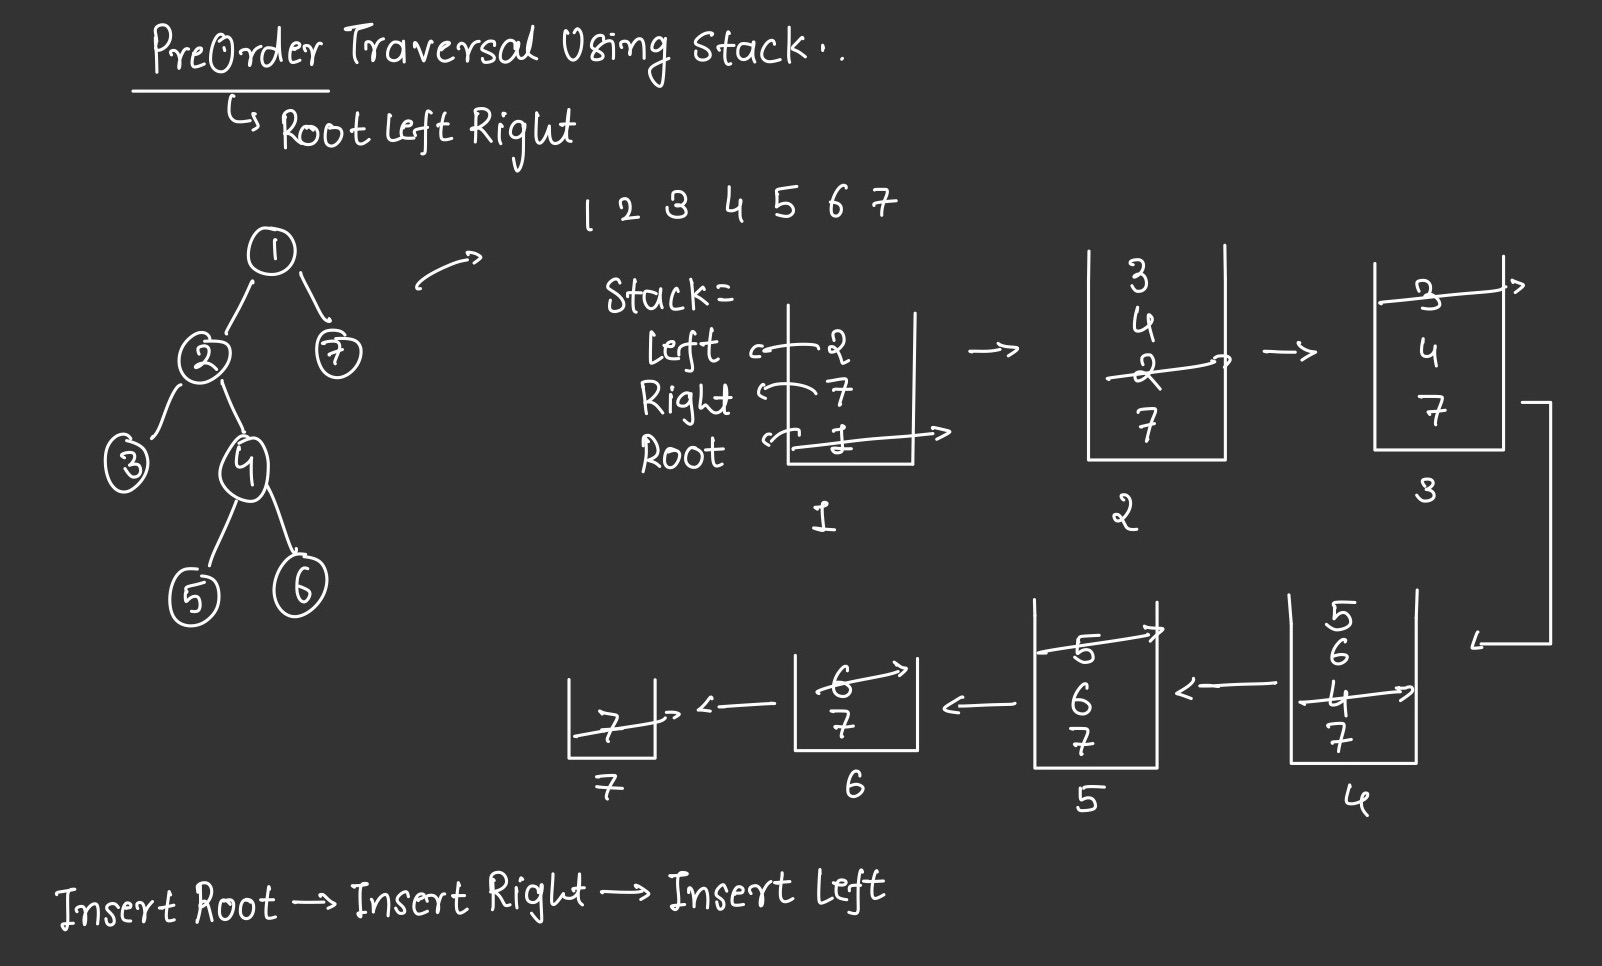 PreOrder Traversal Using Stack..
Root Left Right
1 2 3 4 5 6 7
1
2 7
3 4
5 6
Stack=
Left 2
Right 7
Root 1
1
3
4
2
7
2
3
4
7
3
5
6
4
7
4
5
6
7
5
6
7
6
7
7
Insert Root → Insert Right → Insert Left